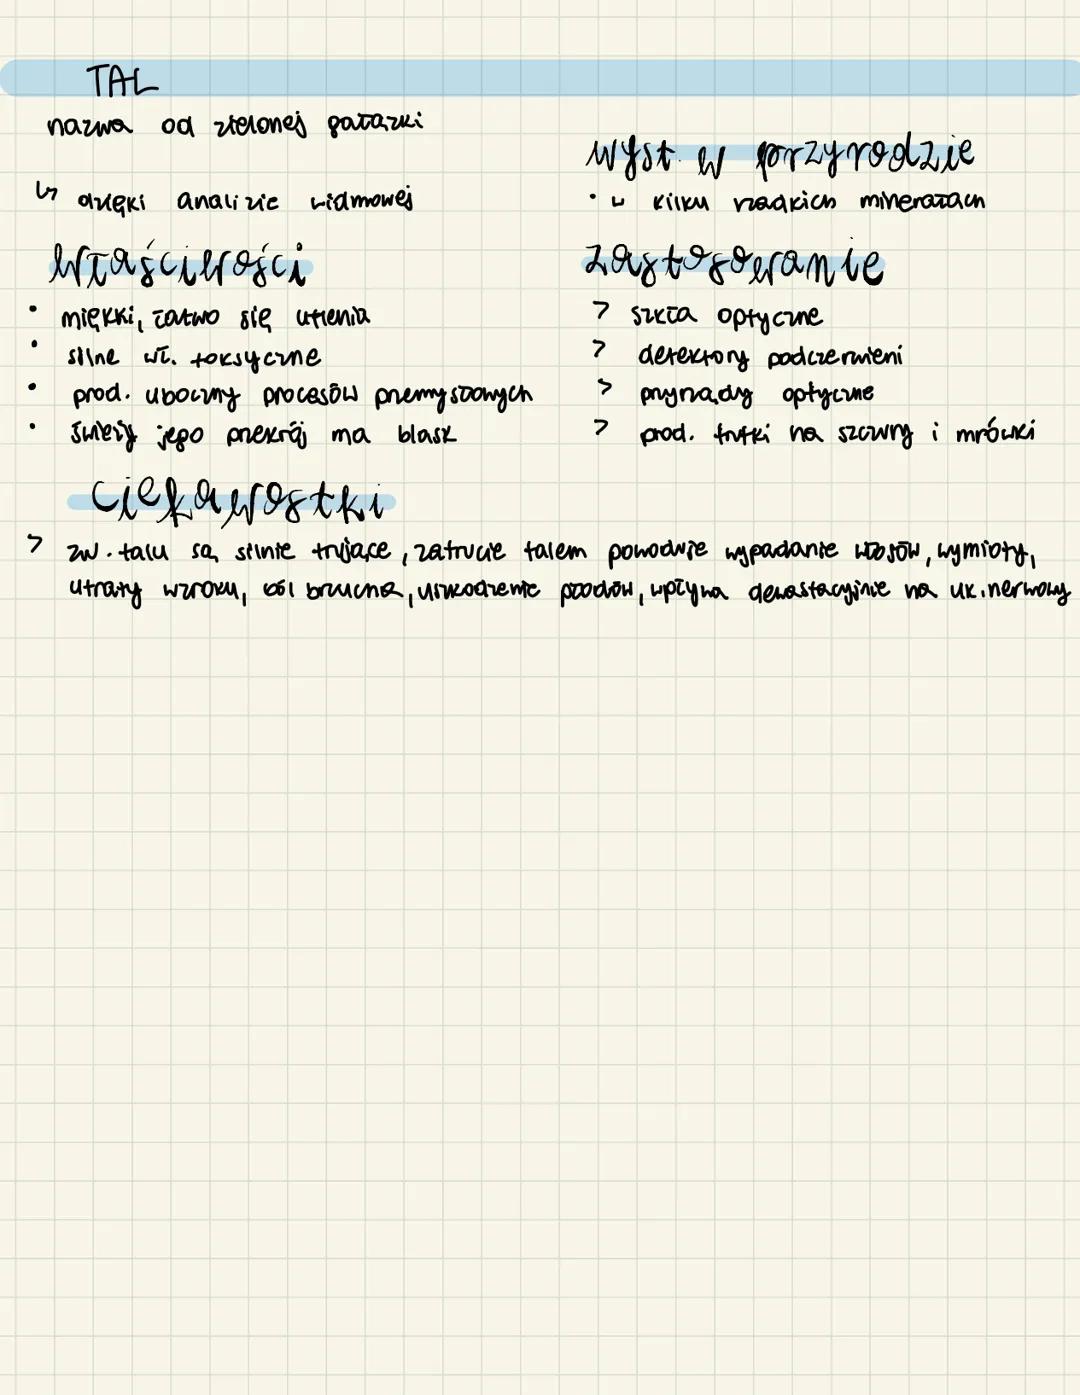 TAL
nazwa od zielonej gałązki
↳ dzięki analizie widmowej
Właściwości
• miękki, łatwo się utlenia
• silne wł. toksyczne
• prod. uboczny procesów przemysłowych
• świeży jego przekrój ma blask
wyst. w przyrodzie
• w kilku rzadkich minerałach
zastosowanie
> szkła optyczne
> detektory podczerwieni
> przyrządy optyczne
> prod. trutki na szczury i mrówki
ciekawostki
> zw. talu są silnie trujące, zatrucie talem powoduje wypadanie włosów, wymioty,
utraty wzroku, ból brzucha, uszkodzenie płodów, wpływa dewastacyjnie na uk. nerwowy